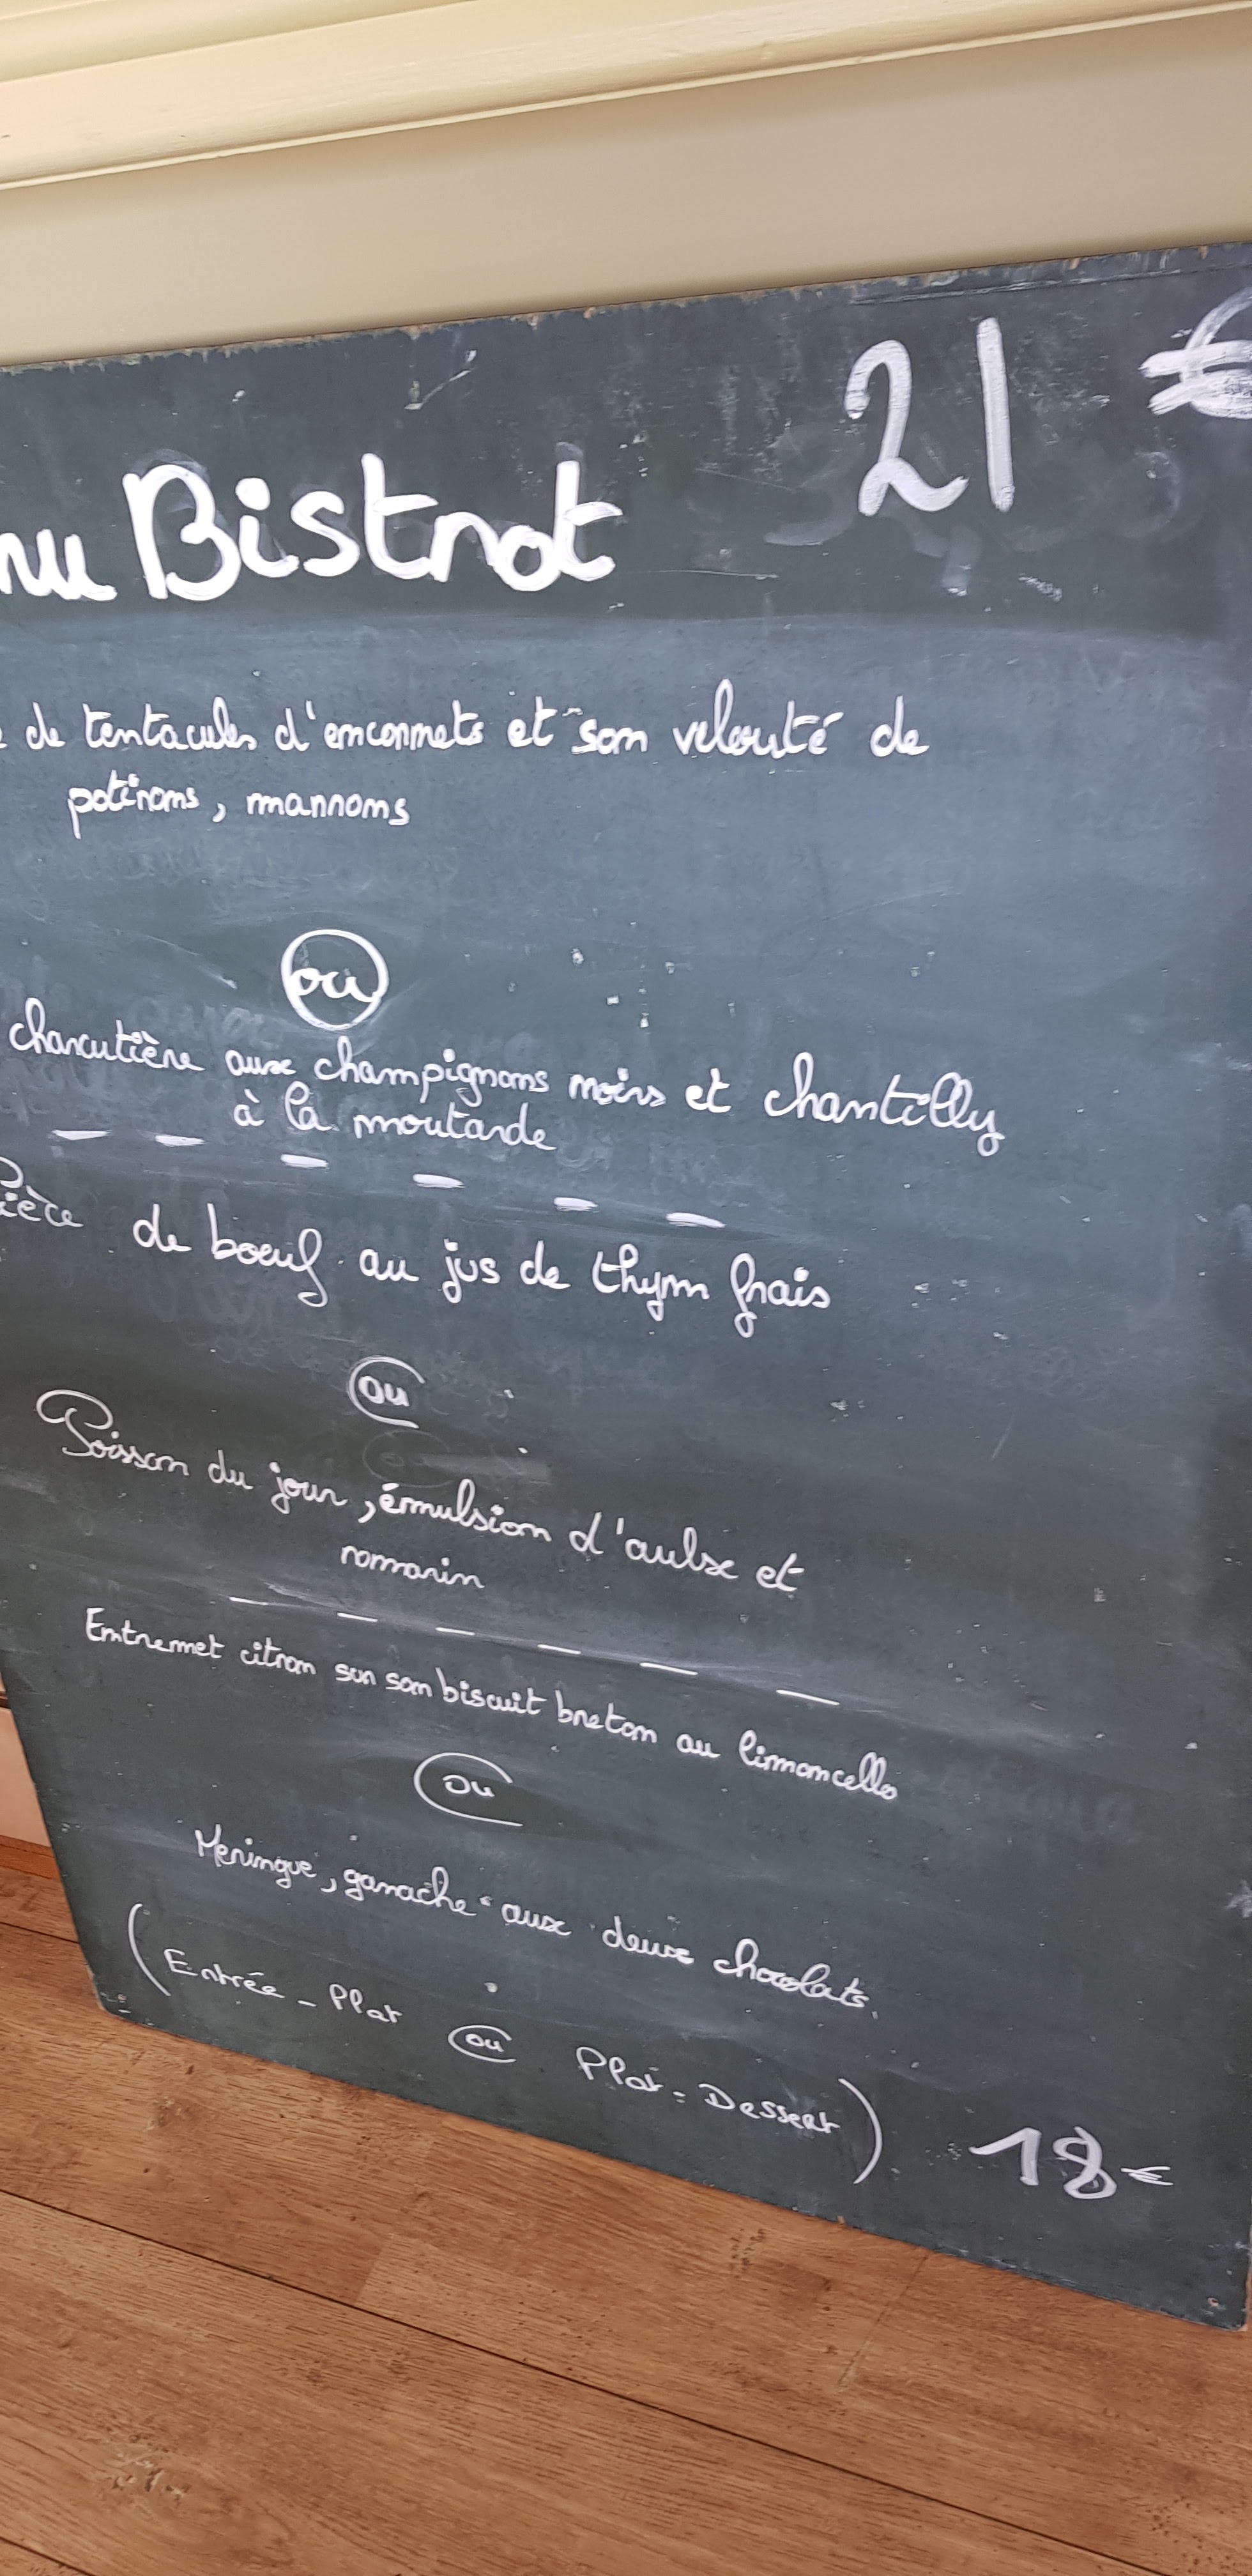 21 €
nu Bistrot
de tentacules d'encornets et son velouté de
potirons, marrons
ou
charcutière aux champignons noirs et chantilly
à la moutarde
Pièce de boeuf au jus de thym frais
ou
Poisson du jour, émulsion d'aulx et
romarin
Entremet citron sur son biscuit breton au limoncello
ou
Meringue, ganache aux deux chocolats.
(Entrée - Plat ou Plat - Dessert) 18 €